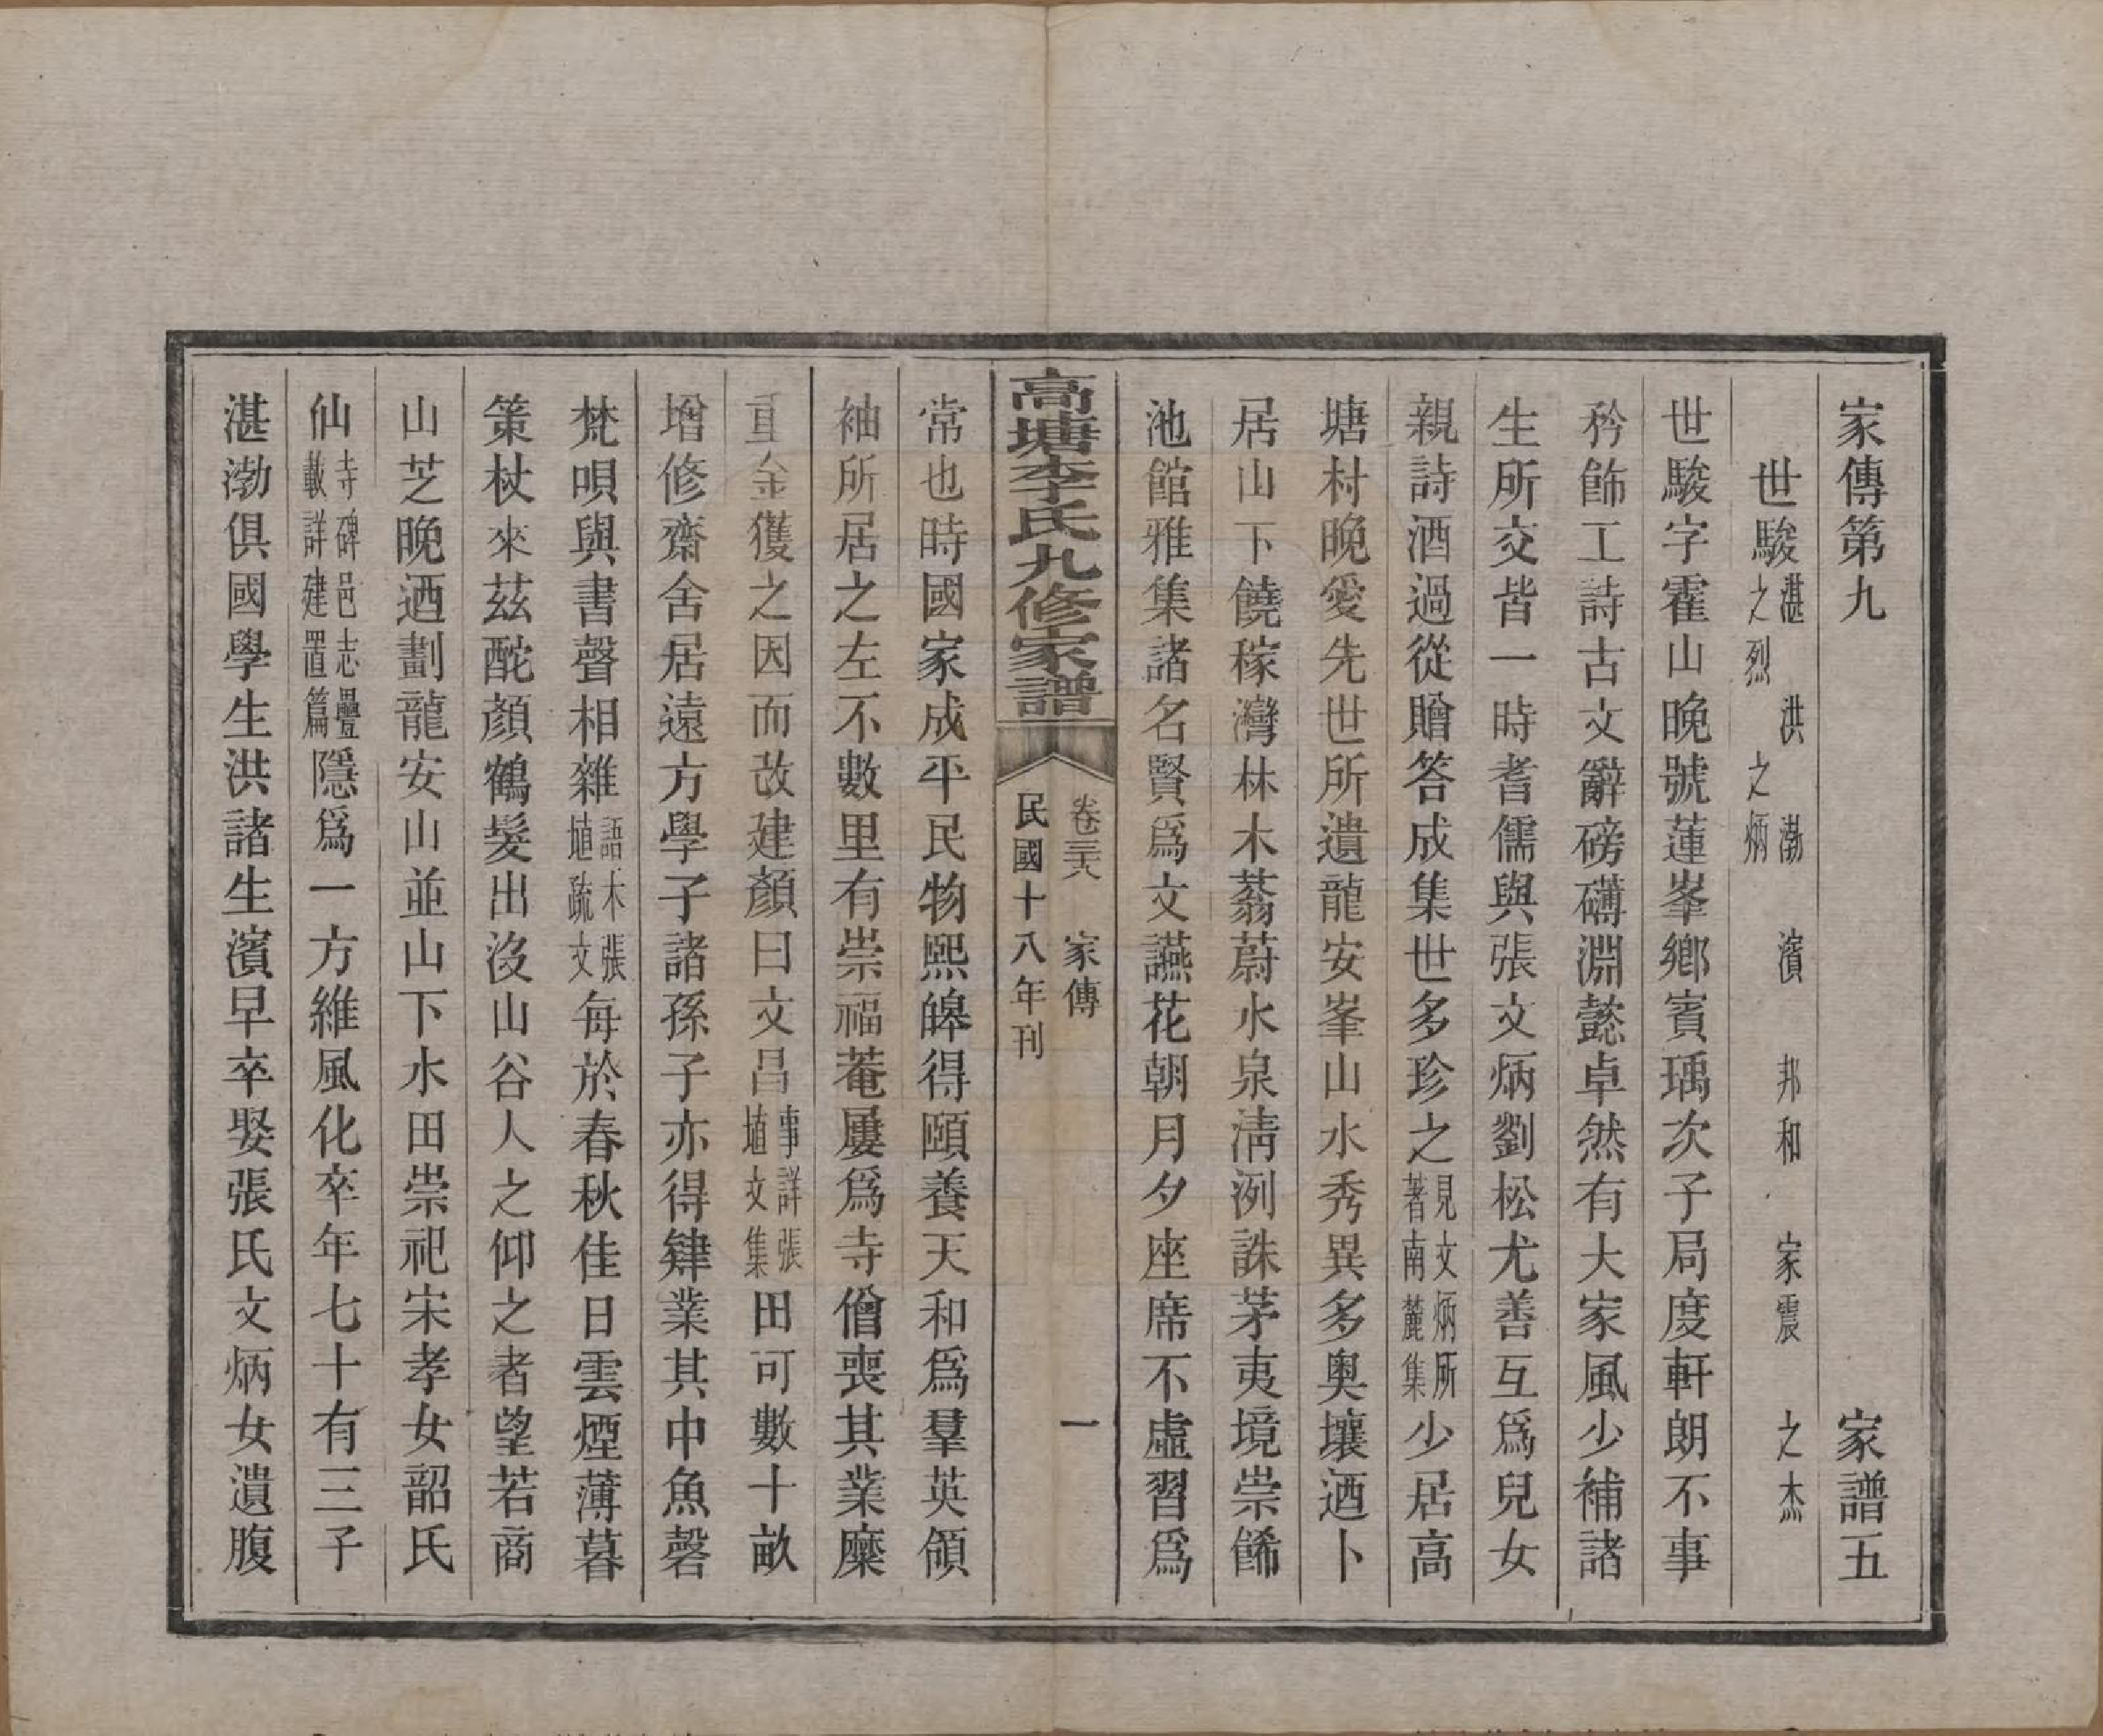 家傳第九　家譜五
世駿湛　洪　渤　濱　邦和　家震　之杰　之烈　之炳
世駿字霍山晚號蓮峯鄉賓瑀次子局度軒朗不事
矜飾工詩古文辭磅礴淵懿卓然有大家風少補諸
生所交皆一時耆儒與張文炳劉松尤善互爲兒女
親詩酒過從贈答成集世多珍之見文炳所著南麓集少居高
塘村晚愛先世所遺龍安峯山水秀異多奧壤迺卜
居山下饒稼灣林木蓊蔚水泉淸洌誅茅夷境崇餙
池館雅集諸名賢爲文讌花朝月夕座席不虛習爲
高塘李氏九修家譜　卷三十六　家傳　一　民國十八年刊
常也時國家成平民物熙皞得頤養天和爲羣英領
袖所居之左不數里有崇福菴屢爲寺僧喪其業糜
重金獲之因而改建顏曰文昌事詳張埴文集田可數十畝
增修齋舍居遠方學子諸孫子亦得肄業其中魚磬
梵唄與書聲相雜語本張埴疏文每於春秋佳日雲煙薄暮
策杖來茲酡顏鶴髮出沒山谷人之仰之者望若商
山芝晚迺劃龍安山並山下水田崇祀宋孝女韶氏
仙寺碑邑志疊載詳建置篇隱爲一方維風化卒年七十有三子
湛渤俱國學生洪諸生濱早卒娶張氏文炳女遺腹